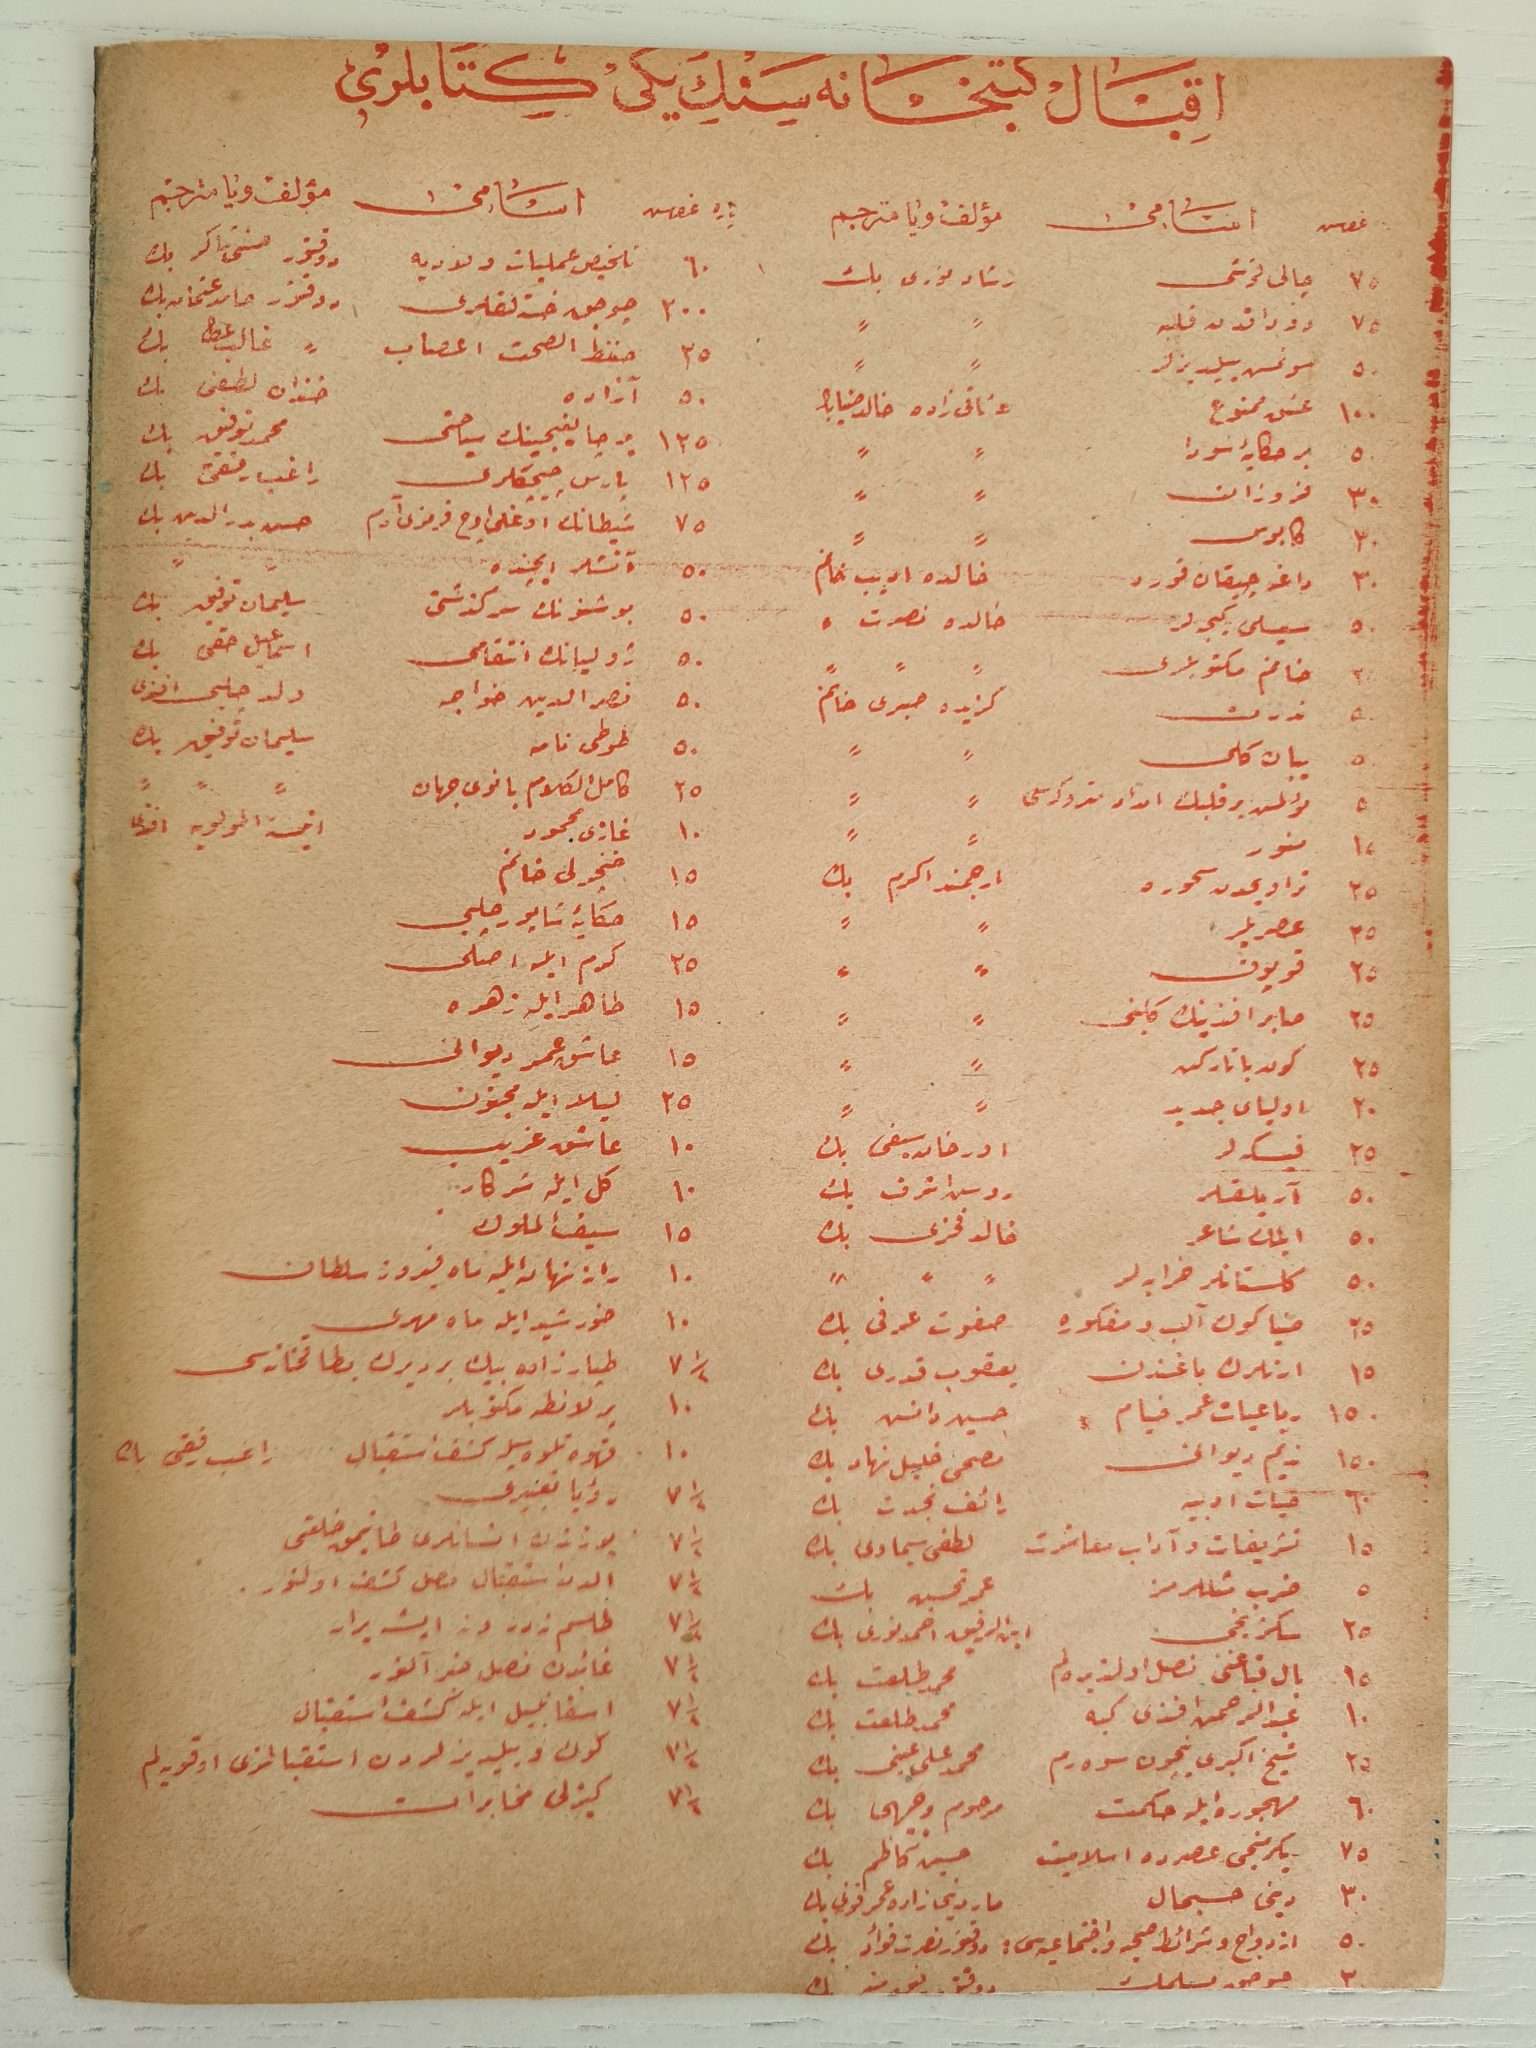 اقبال كتبخانه سينك يكى كتابلرى
غروش اسامى مؤلف ويا مترجم
٧٥ چالى قوشى رشاد نورى بك
٧٥ دوداقدن قلبه 〃 〃
٥٠ سونمش ييلديزلر 〃 〃
١٠٠ عشق ممنوع عشاقى زاده خالد ضيا بك
٥٠ بر حكايۀ سودا 〃 〃
٣٠ 〃 〃
٣٠ كابوس 〃 〃
٣٠ داغه چيقان قورد خالده اديب خانم
٥٠ سيسلى كيجه لر خالده نصرت 〃
خانم مكتوبلرى 〃 〃 〃
٥٠ ندرت كزيده صبرى خانم
٥٠ يبان كلى 〃 〃
٥٠ اولمش بر قلبك اوراق متروكه سى 〃 〃
منور 〃 〃
٢٥ تراويحدن سحوره ارجمند اكرم بك
٢٥ عصريلر 〃 〃
٢٥ 〃 〃
٢٥ صابر افندينك كلينى 〃 〃
٢٥ كون باتاركن 〃 〃
٢٠ اولياى جديد 〃 〃
٢٥ فيسكه لر اورخان سيفى بك
٥٠ آريلقلر روشن اشرف بك
٥٠ ايلك شاعر خالد فخرى بك
٥٠ كلستانلر خرابه لر 〃 〃 〃
٢٥ ضيا كوك آلپ و مفكوره صفوت عرفى بك
١٥ ارنلرك باغندن يعقوب قدرى بك
١٥٠ رباعيات عمر خيام حسين دانش بك
١٥٠ نديم ديوانى مصححى خليل نهاد بك
٦٠ حيات ادبيه رائف نجدت بك
١٥ تشريفات و آداب معاشرت لطفى سيماوى بك
٥ ضرب مثللرمز عمر تحسين بك
٢٥ سكزنجى ابن الرفيق احمد نورى بك
١٥ محمد طلعت بك
١٠ عبد الرحمن افندى محمد طلعت بك
٢٥ شيخ اكبرى نيچون سوه رم محمد على عينى بك
٦٠ مهجوره ايله حكمت مرحوم وجيهى بك
٧٥ يكرمنجى عصرده اسلاميت حسين كاظم بك
٣٠ دينى حسبحال ماردينى زاده عمر فوزى بك
٥٠ ازدواج و شرائط صحيه و اجتماعيه سى : دوقتور نصرت فؤاد بك
٣٠ چوجوق دوقتور بك
پاره غروش اسامى مؤلف ويا مترجم
٦٠ تلخيص عمليات ولاديه دوقتور شاكر بك
٢٠٠ چوجوق خسته لقلرى دوقتور حامد عثمان بك
٣٥ حفظ الصحت اعصاب 〃 غالب عطا بك
٥٠ آزاده خندان لطفى بك
١٢٥ پوچا يغيجينك سياحتى محمد توفيق بك
١٢٥ پارس چيچكلرى راغب رفقى بك
٧٥ شيطانك اوغلى اوچ قرمزى آدم حسن بدر الدين بك
٥٠ آتشلر ايچنده 〃 〃
٥٠ بوشنونك سركذشتى سليمان توفيق بك
٥٠ ژوليانك انتقامى اسماعيل حقى بك
٥٠ نصر الدين خواجه ولد چلبى افندى
٥٠ طوطى نامه سليمان توفيق بك
٢٥ كامل الكلام بانوى جهان 〃 〃 〃
١٠ غازى محمود افندى
١٥ خنجرلى خانم
١٥ حكايۀ شاپور چلبى
٢٥ كرم ايله اصلى
١٥ طاهر ايله زهره
١٥ عاشق عمر ديوانى
٢٥ ليلا ايله مجنون
١٠ عاشق غريب
١٠ كل ايله
١٥ سيف الملوك
١٠ راز نهان ايله ماه فيروز سلطان
١٠ خورشيد ايله ماه مهرى
٧½ طيار زاده بيك بر ديرك بطاقخانه سى
١٠ پرلانطه مكتوبلر
١٠ قهوه تلوه سيله كشف استقبال راغب رفقى بك
٧½ رؤيا تعبيرى
٧½ يوزندن انسانلرى طانيمق خلقى
٧½ الدن استقبال نصل كشف اولنور
٧½ طلسم نه در و نه ايشه يرار
٧½ غائبدن نصل خبر آلنور
٧½ اسقانبيل ايله كشف استقبال
٧½ كوك و ييلديزلردن استقبالمزى اوقويه لم
٧½ كيزلى مخابرات